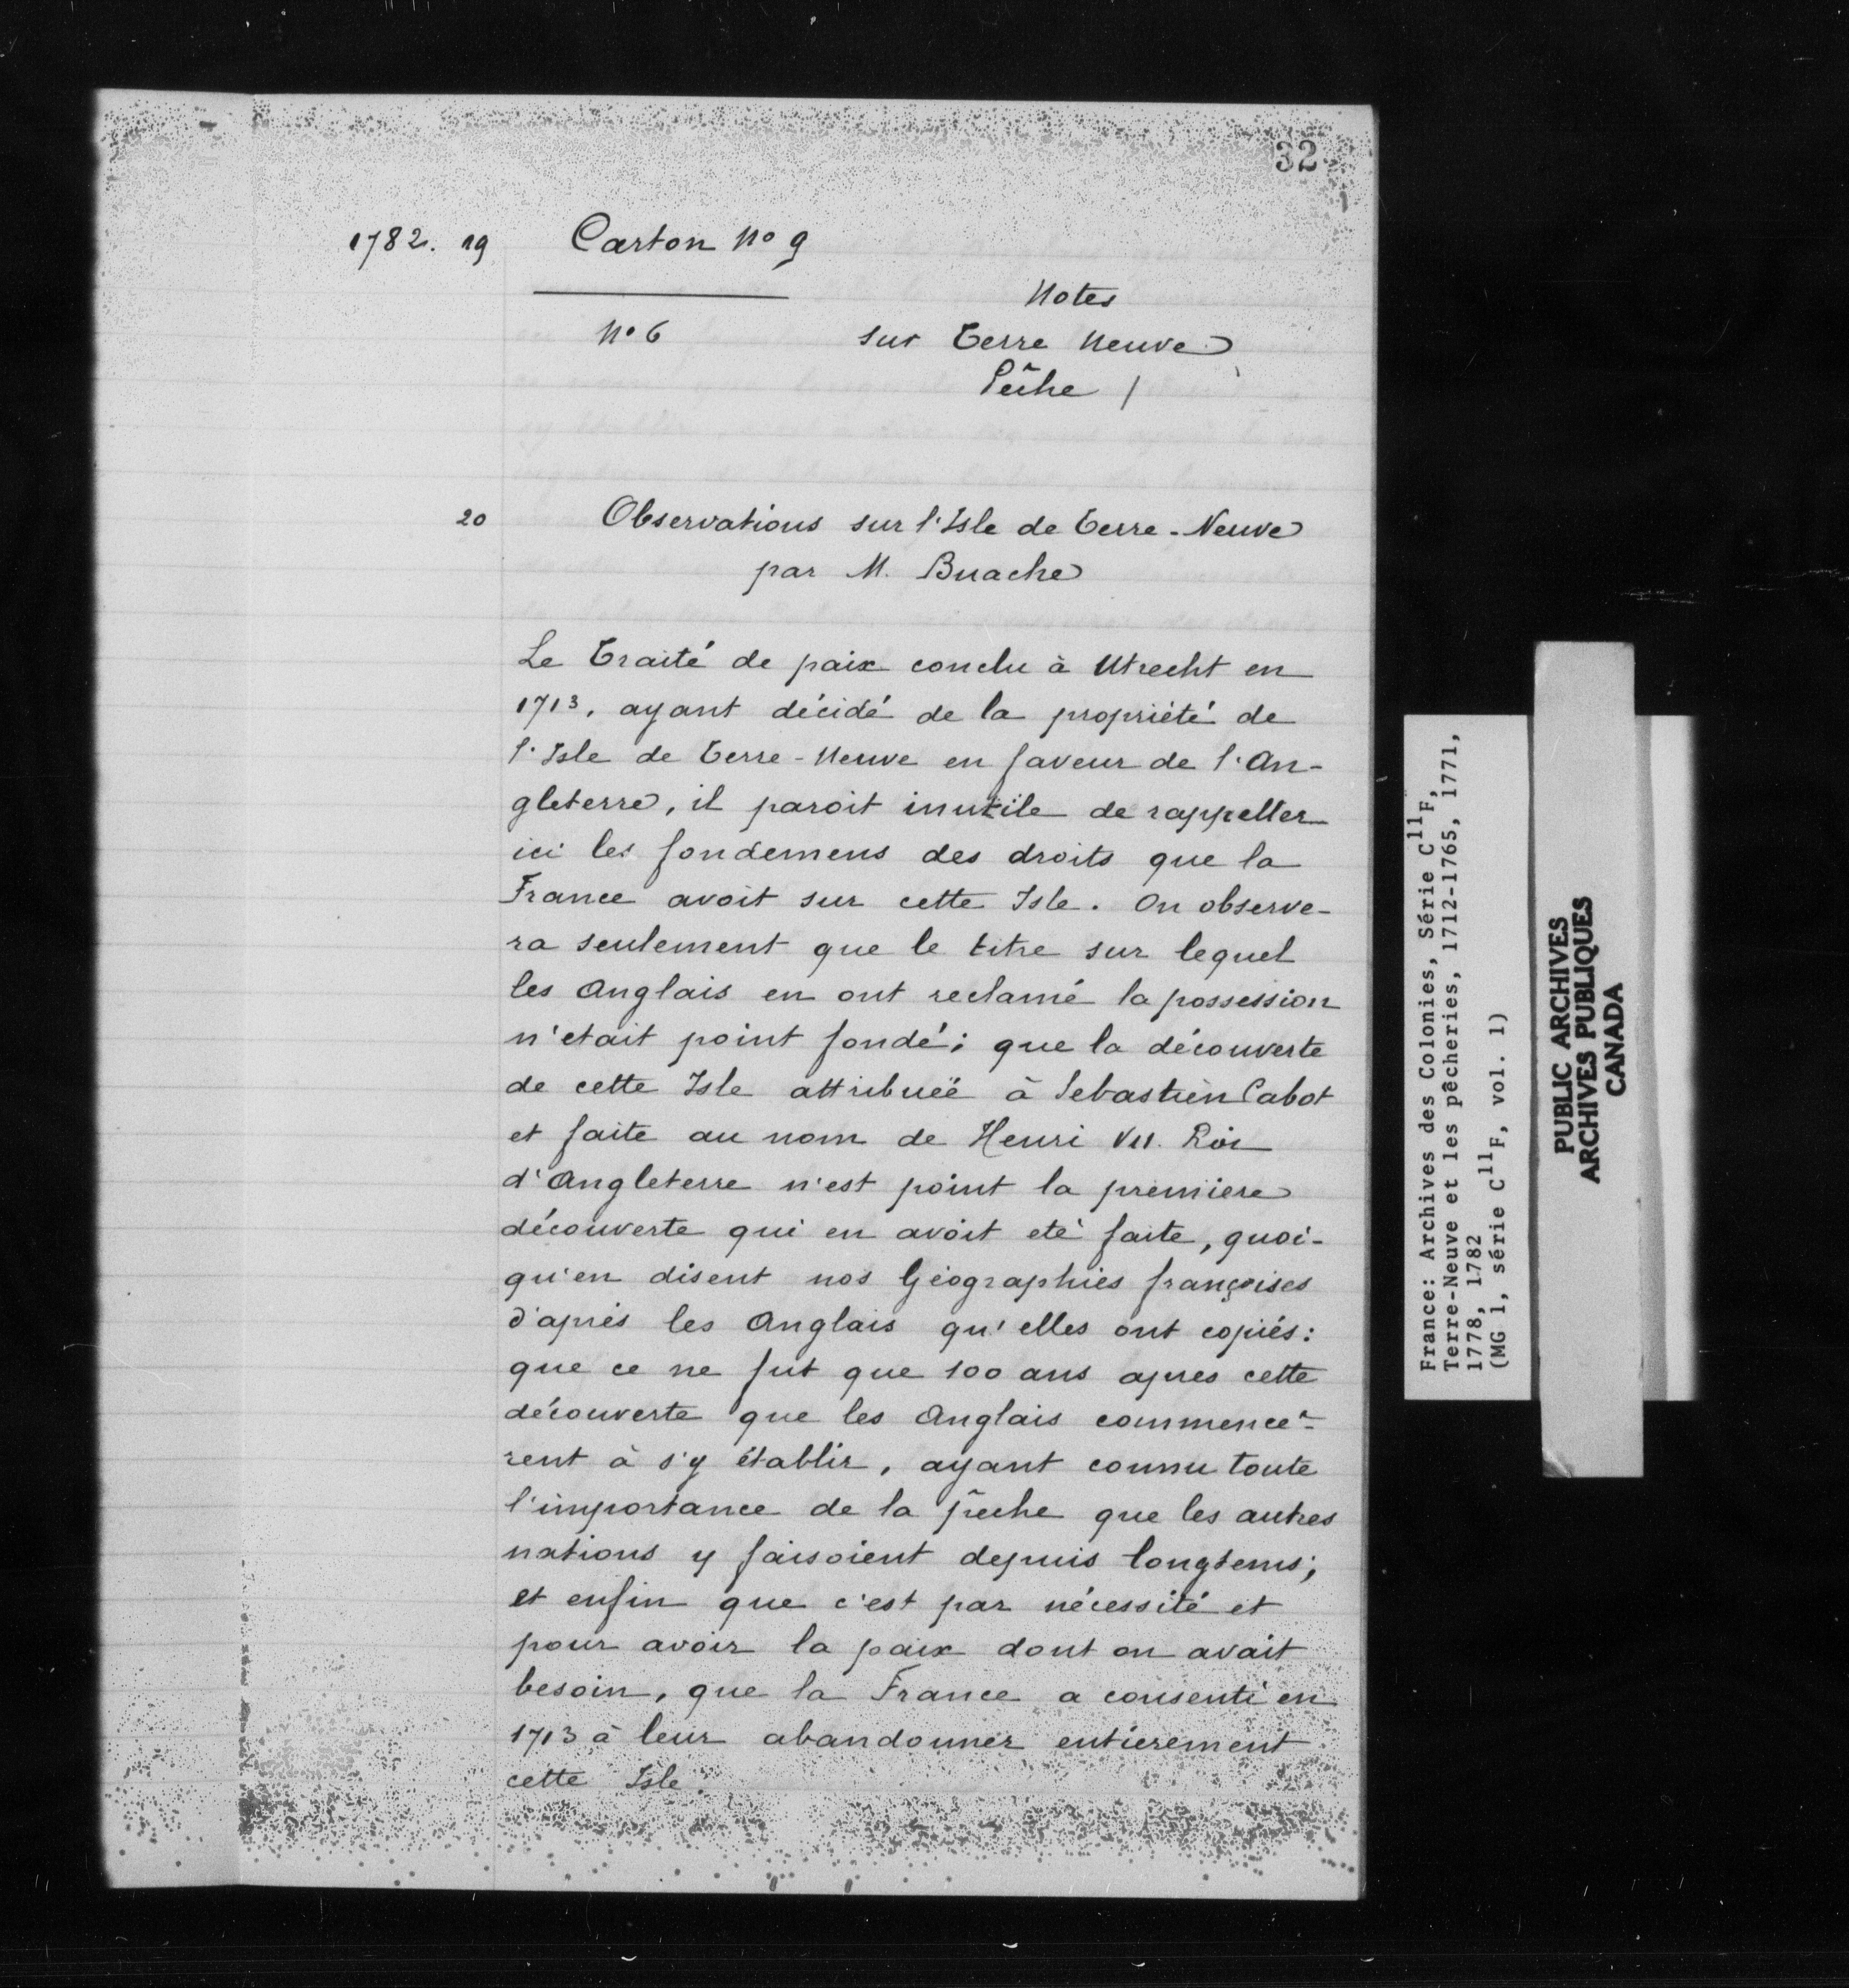 32
1782. 19 Carton No 9
Notes
No 6 sur Terre Neuve
Pêche /
20 Observations sur l'Isle de Terre-Neuve
par M. Buache
Le Traité de paix conclu à Utrecht en
1713, ayant décidé de la propriété de
l'Isle de Terre-Neuve en faveur de l'An-
gleterre, il paroit inutile de rappeller
ici les fondemens des droits que la
France avoit sur cette Isle. On observe-
ra seulement que le titre sur lequel
les Anglais en ont reclamé la possession
n'etait point fondé; que la découverte
de cette Isle attribuëe à Sebastien Cabot
et faite au nom de Henri VII. Roi
d'Angleterre n'est point la premiere
découverte qui en avoit eté faite, quoi-
qu'en disent nos Géographies françoises
d'après les Anglais qu'elles ont copiés:
que ce ne fut que 100 ans apres cette
découverte que les Anglais commencè-
rent à s'y établir, ayant connu toute
l'importance de la pêche que les autres
nations y faisoient depuis longtems;
et enfin que c'est par nécessité et
pour avoir la paix dont on avait
besoin, que la France a consenti en
1713 à leur abandonner entièrement
cette Isle.
France: Archives des Colonies, Série C11F,
Terre-Neuve et les pêcheries, 1712-1765, 1771,
1778, 1782
(MG 1, série C11F, vol. 1)
PUBLIC ARCHIVES
ARCHIVES PUBLIQUES
CANADA